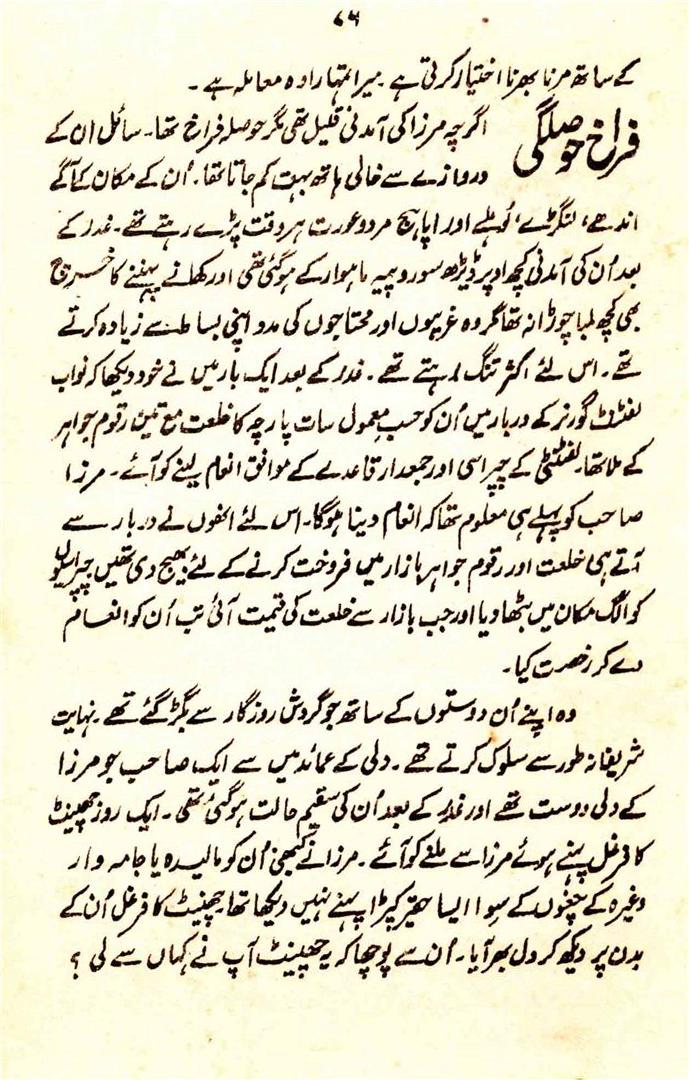 ۷۶
کے ساتھ مرنا بھرنا اختیار کرتی ہے۔ میرا تمہارا وہ معاملہ ہے۔
فراخ حوصلگی
اگرچہ مرزا کی آمدنی قلیل تھی مگر حوصلہ فراخ تھا۔ سائل ان کے
دروازے سے خالی ہاتھ بہت کم جاتا تھا۔ اُن کے مکان کے آگے
اندھے، لنگڑے، لُولے اور اپاہج مرد و عورت ہر وقت پڑے رہتے تھے۔ غدر کے
بعد اُن کی آمدنی کچھ اوپر ڈیڑھ سو روپیہ ماہوار کے ہوگئی تھی اور کھانے پہننے کا خرچ
بھی کچھ لمبا چوڑا نہ تھا مگر وہ غریبوں اور محتاجوں کی مدد اپنی بساط سے زیادہ کرتے
تھے۔ اس لئے اکثر تنگ رہتے تھے۔ غدر کے بعد ایک بار میں نے خود دیکھا کہ نواب
لفٹنٹ گورنر کے دربار میں اُن کو حسب معمول سات پارچہ کا خلعت مع تین رقوم جواہر
کے ملا تھا۔ لفٹنٹی کے چپراسی اور جمعدار قاعدے کے موافق انعام لینے کو آئے۔ مرزا
صاحب کو پہلے ہی معلوم تھا کہ انعام دینا ہوگا۔ اس لئے انھوں نے دربار سے
آتے ہی خلعت اور رقوم جواہر بازار میں فروخت کرنے کے لئے بھیج دی تھیں چپراسیوں
کو الگ مکان میں بٹھا دیا اور جب بازار سے خلعت کی قیمت آئی تب اُن کو انعام
دے کر رخصت کیا۔
وہ اپنے اُن دوستوں کے ساتھ جو گردش روزگار سے بگڑ گئے تھے۔ نہایت
شریفانہ طور سے سلوک کرتے تھے۔ دلی کے عمائد میں سے ایک صاحب جو مرزا
کے دلی دوست تھے اور غدر کے بعد اُن کی سقیم حالت ہوگئی تھی۔ ایک روز چھینٹ
کا فرغل پہنے ہوئے مرزا سے ملنے کو آئے۔ مرزا نے کبھی اُن کو مالیدہ یا جامہ وار
وغیرہ کے چغوں کے سوا ایسا حقیر کپڑا پہنے نہیں دیکھا تھا۔ چھینٹ کا فرغل اُن کے
بدن پر دیکھ کر دل بھر آیا۔ اُن سے پوچھا کہ یہ چھینٹ آپ نے کہاں سے لی؟